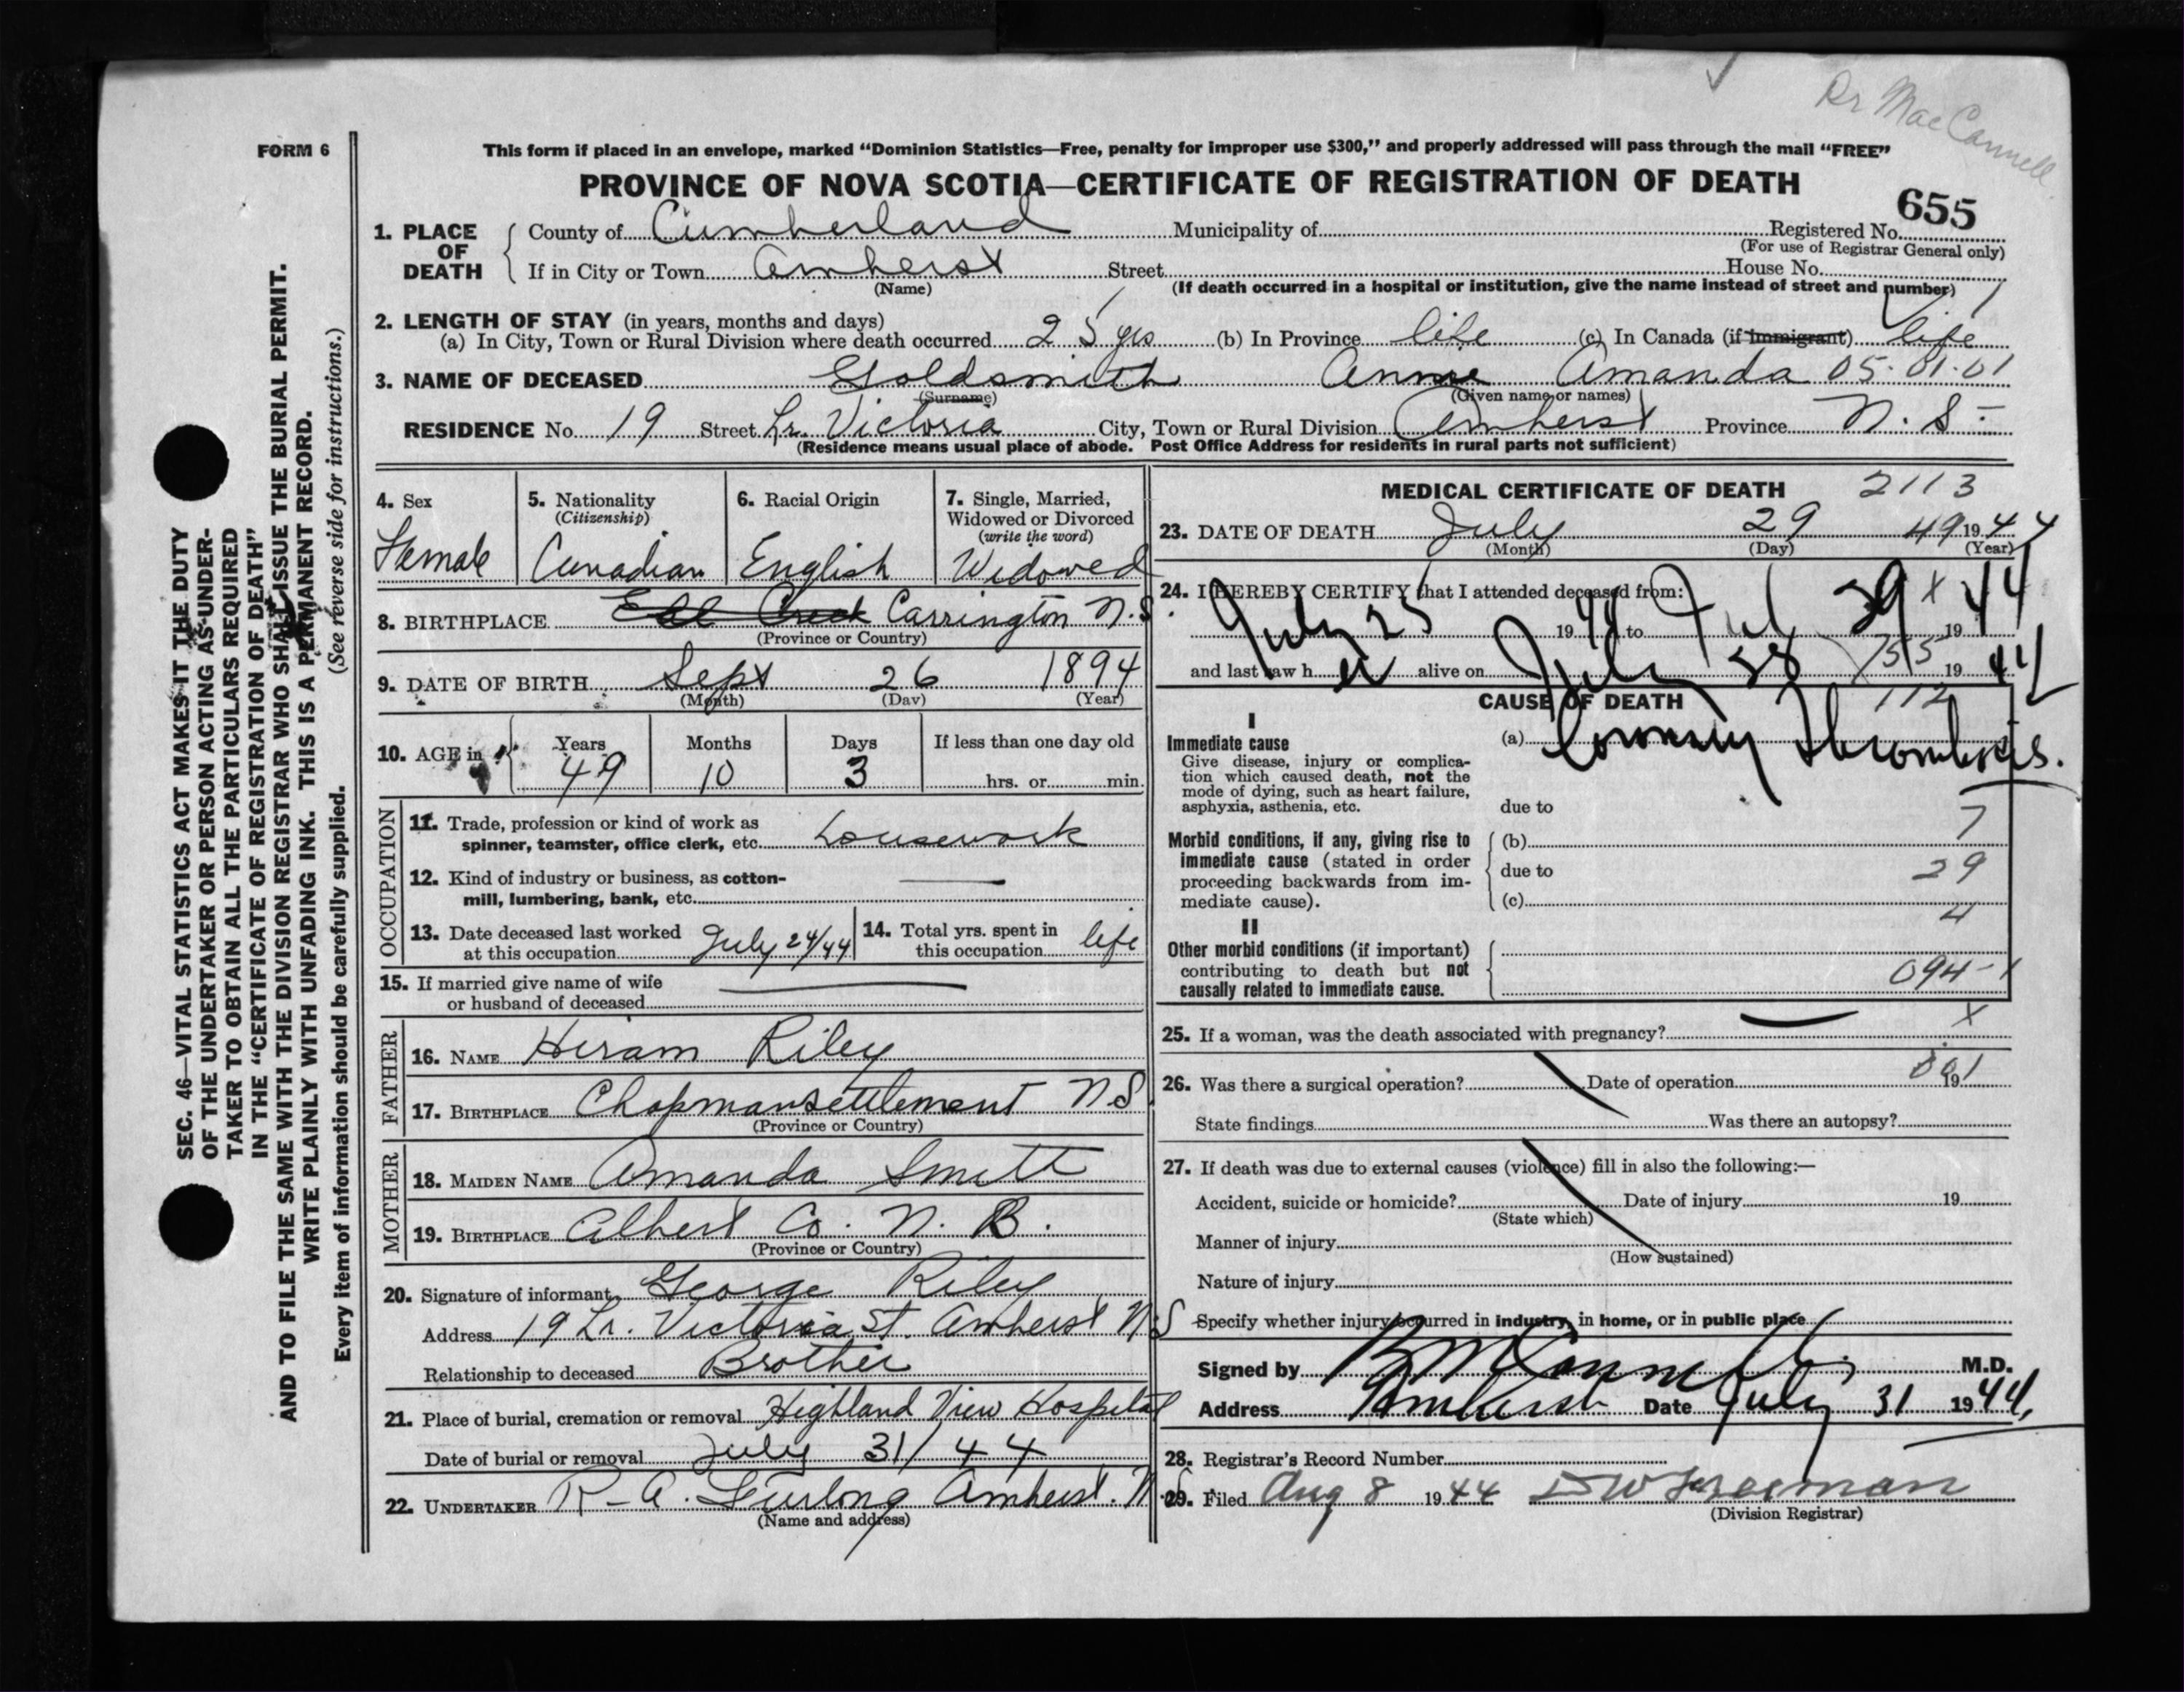 Dr MacCannell
FORM 6
This form if placed in an envelope, marked "Dominion Statistics—Free, penalty for improper use $300," and properly addressed will pass through the mail "FREE"
PROVINCE OF NOVA SCOTIA—CERTIFICATE OF REGISTRATION OF DEATH
655
1. PLACE OF DEATH County of Cumberland Municipality of Registered No.
(For use of Registrar General only)
If in City or Town Amherst Street House No.
(Name) (If death occurred in a hospital or institution, give the name instead of street and number)
2. LENGTH OF STAY (in years, months and days)
(a) In City, Town or Rural Division where death occurred 25 yrs (b) In Province life (c) In Canada (if immigrant) life
3. NAME OF DECEASED Goldsmith Annie Amanda 05.01.01
(Surname) (Given name or names)
RESIDENCE No. 19 Street Lr. Victoria City, Town or Rural Division Amherst Province N.S.
(Residence means usual place of abode. Post Office Address for residents in rural parts not sufficient)
4. Sex Female
5. Nationality (Citizenship) Canadian
6. Racial Origin English
7. Single, Married, Widowed or Divorced (write the word) Widowed
8. BIRTHPLACE Carrington N.S.
(Province or Country)
9. DATE OF BIRTH Sept 26 1894
(Month) (Day) (Year)
10. AGE in Years 49 Months 10 Days 3 If less than one day old hrs. or min.
OCCUPATION
11. Trade, profession or kind of work as
spinner, teamster, office clerk, etc. housework
12. Kind of industry or business, as cotton-
mill, lumbering, bank, etc.
13. Date deceased last worked
at this occupation July 24/44
14. Total yrs. spent in
this occupation life
15. If married give name of wife
or husband of deceased
FATHER
16. NAME Hiram Riley
17. BIRTHPLACE Chapmansettlement N.S.
(Province or Country)
MOTHER
18. MAIDEN NAME Amanda Smith
19. BIRTHPLACE Albert Co. N. B.
(Province or Country)
20. Signature of informant George Riley
Address 19 Lr. Victoria St. Amherst N.S
Relationship to deceased Brother
21. Place of burial, cremation or removal Highland View Hospital
Date of burial or removal July 31/44
22. UNDERTAKER R-A. Furlong Amherst. N.S.
(Name and address)
MEDICAL CERTIFICATE OF DEATH 2113
23. DATE OF DEATH July 29 49 1944
(Month) (Day) (Year)
24. I HEREBY CERTIFY that I attended deceased from:
July 25 1944 to Jul 29 x 1944
and last saw her alive on July 28 755 1944
CAUSE OF DEATH 112
I
Immediate cause
Give disease, injury or complica-
tion which caused death, not the
mode of dying, such as heart failure,
asphyxia, asthenia, etc.
(a) Coronary Thrombosis.
due to
Morbid conditions, if any, giving rise to
immediate cause (stated in order
proceeding backwards from im-
mediate cause).
(b) 7
due to 29
(c) 4
II
Other morbid conditions (if important)
contributing to death but not
causally related to immediate cause.
094-1
25. If a woman, was the death associated with pregnancy? X
26. Was there a surgical operation? Date of operation 19
State findings Was there an autopsy?
27. If death was due to external causes (violence) fill in also the following:—
Accident, suicide or homicide? Date of injury 19
(State which)
Manner of injury
(How sustained)
Nature of injury
Specify whether injury occurred in industry, in home, or in public place
Signed by M.D.
Address Amherst Date July 31 1944.
28. Registrar's Record Number
29. Filed Aug 8 1944 DW Freeman
(Division Registrar)
SEC. 46—VITAL STATISTICS ACT MAKES IT THE DUTY
OF THE UNDERTAKER OR PERSON ACTING AS UNDER-
TAKER TO OBTAIN ALL THE PARTICULARS REQUIRED
IN THE "CERTIFICATE OF REGISTRATION OF DEATH"
AND TO FILE THE SAME WITH THE DIVISION REGISTRAR WHO SHALL ISSUE THE BURIAL PERMIT.
WRITE PLAINLY WITH UNFADING INK. THIS IS A PERMANENT RECORD.
Every item of information should be carefully supplied. (See reverse side for instructions.)